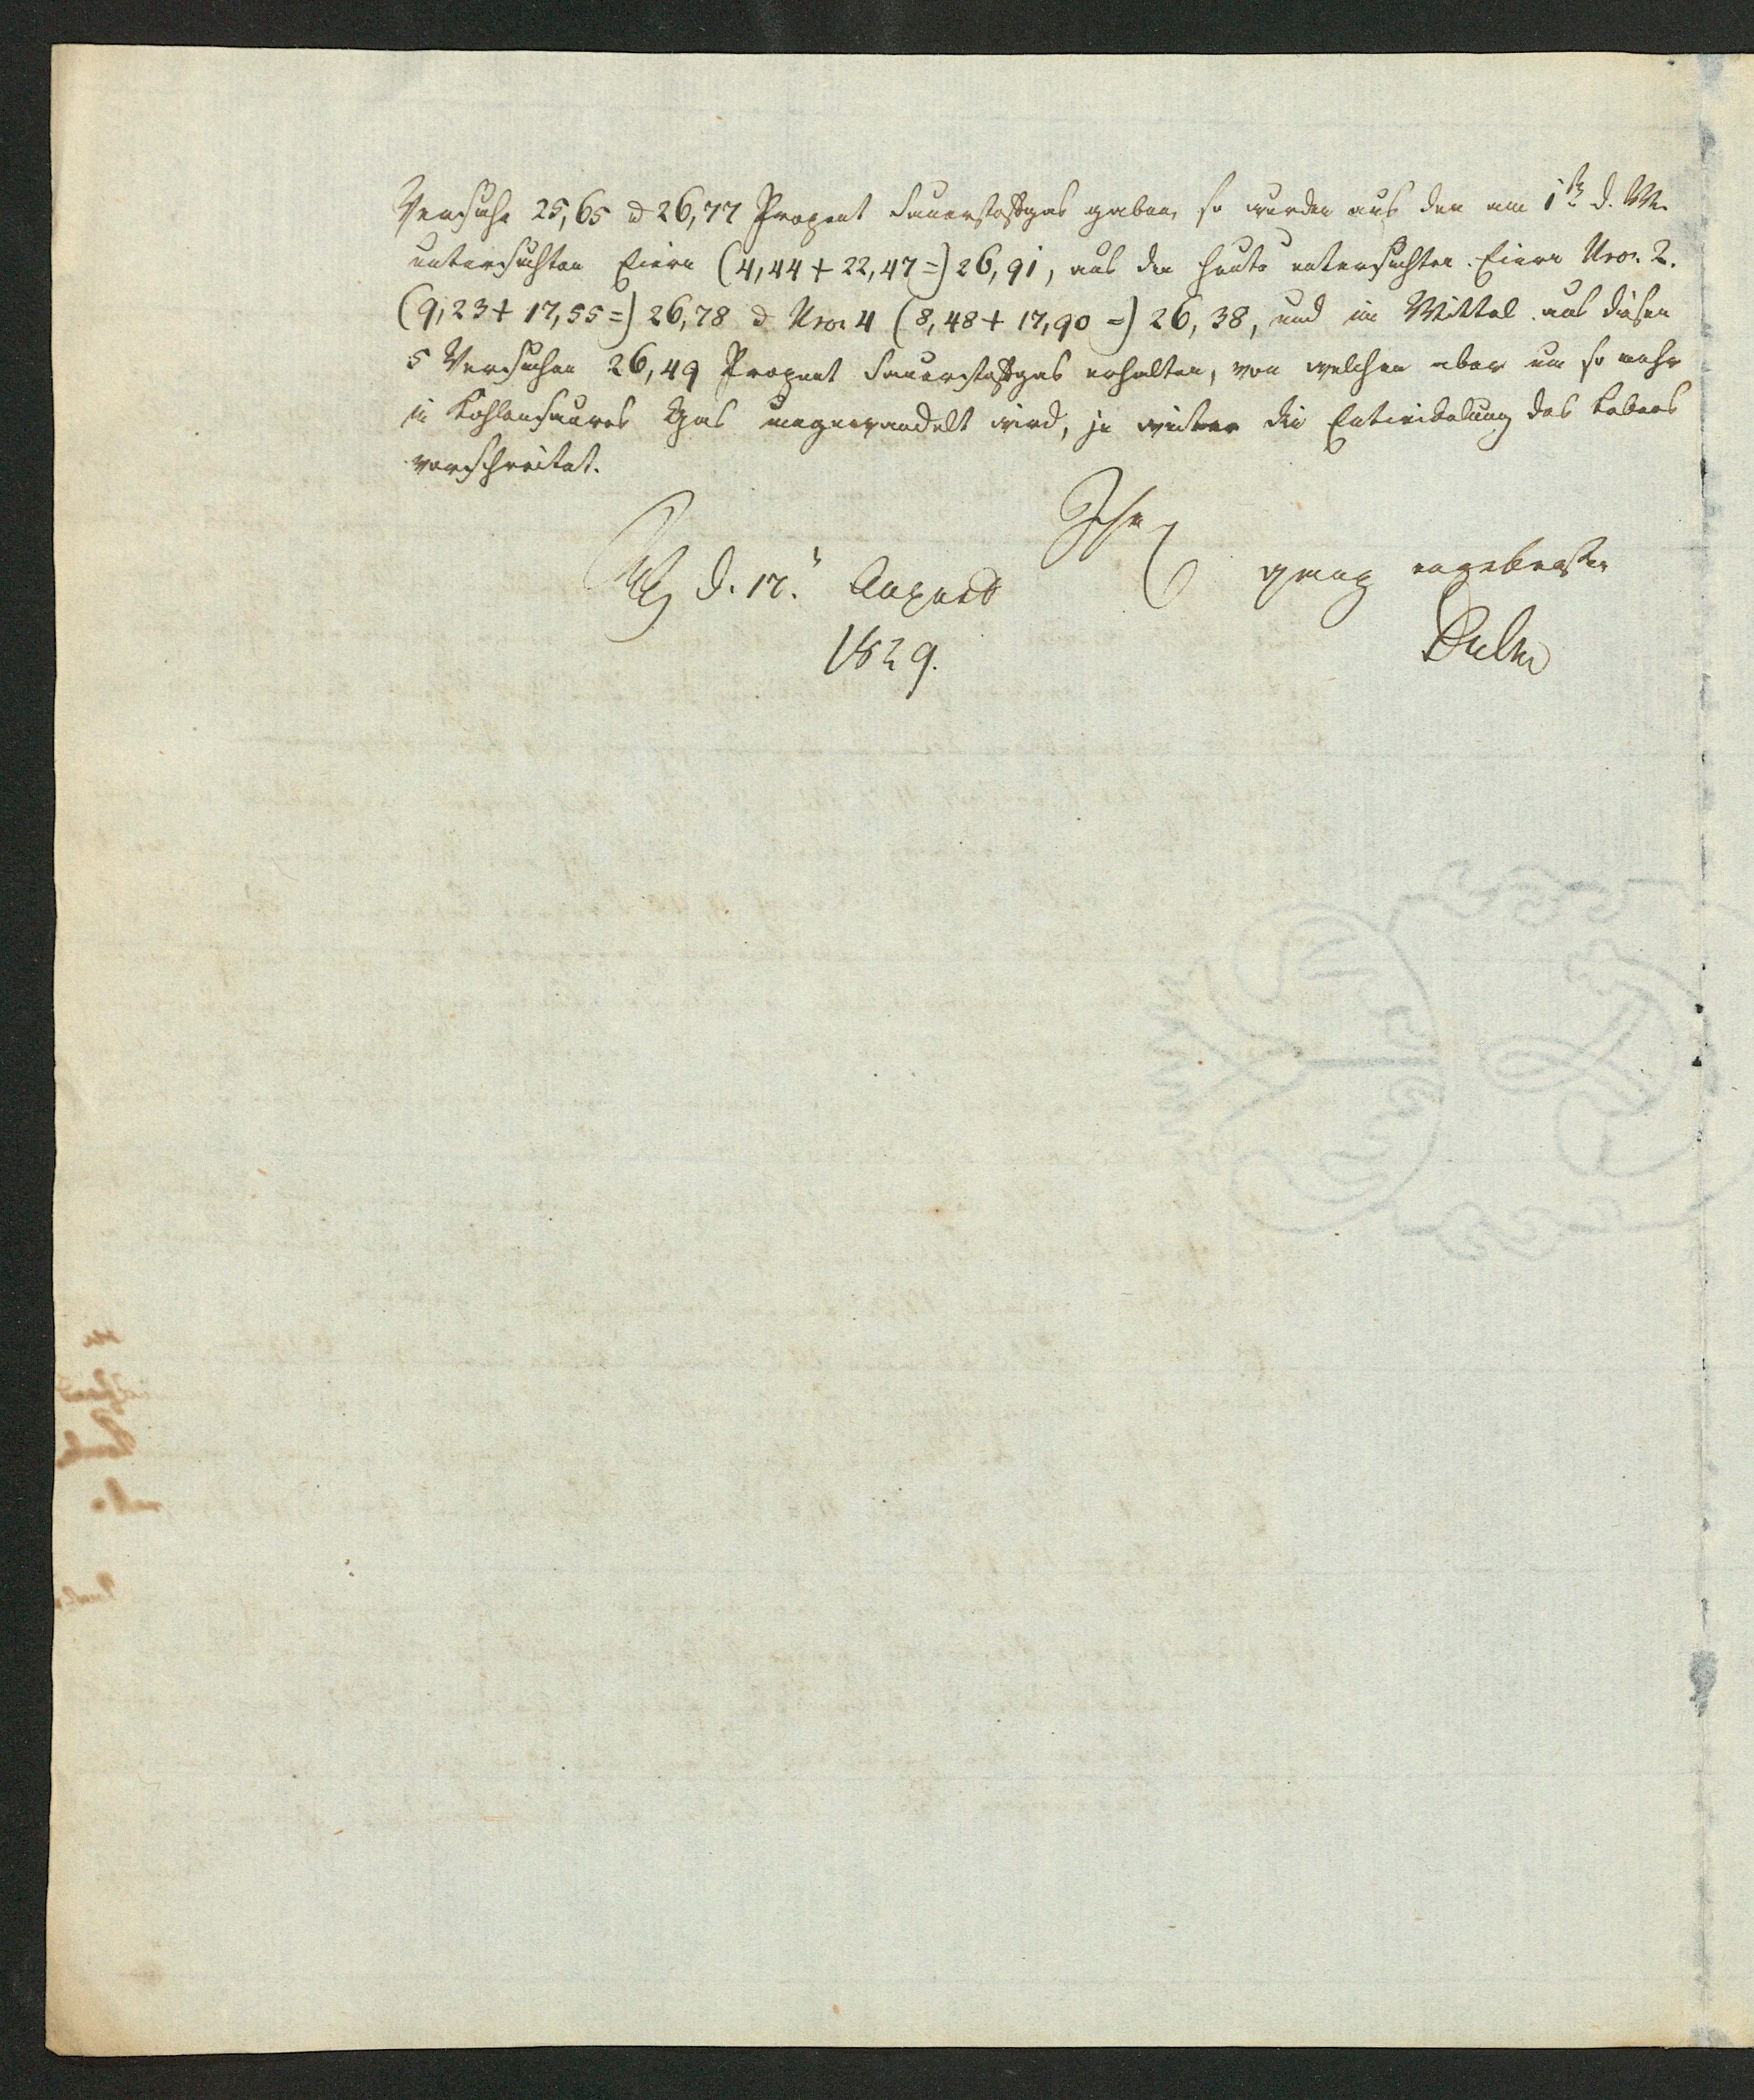 Versuche 25,65 & 26,77 Prozent Sauerstoffgas gaben, so wurden aus den am 1<sup>ten</sup> d. M.
untersuchten Eiern (4,44 + 22,47 =) 26,91, aus den heute untersuchten Eiern Nro. 2.
(9,23 + 17,55 =) 26,78 & Nro. 4 (8,48 + 17,90 =) 26,38, und im Mittel aus diesen
5 Versuchen 26,49 Prozent Sauerstoffgas erhalten, von welchen aber um so mehr
in Kohlensaures Gas umgewandelt wird, je weiter die Entwickelung des Lebens
vorschreitet.
Ihr
d. 17. August
ganz ergebenster
1829.
Dulk